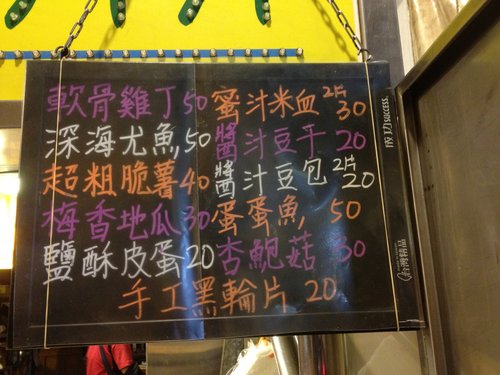 軟骨雞丁50 蜜汁米血2片30
深海尤魚,50 醬汁豆干20
超粗脆薯40 醬汁豆包2片20
梅香地瓜30 蛋蛋魚,50
鹽酥皮蛋20 杏鮑菇30
手工黑輪片20
成功SUCCESS
台灣精品